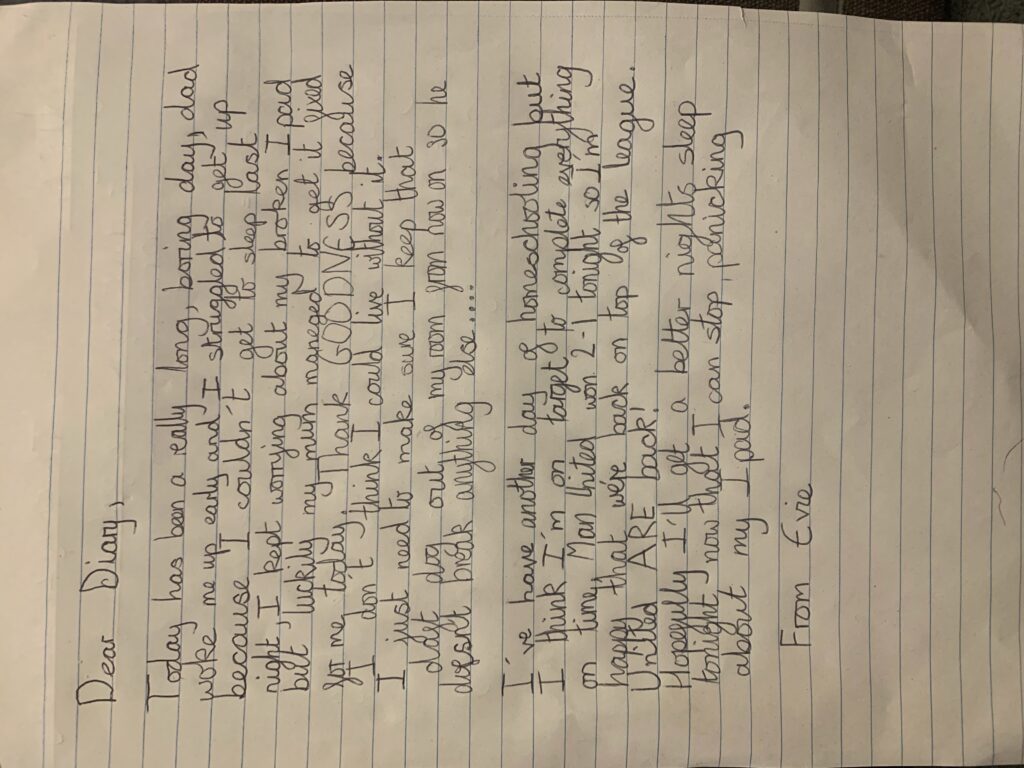 Dear Diary,
Today has been a really long, boring day, dad
woke me up early and I struggled to get up
because I couldn't get to sleep last
night, I kept worrying about my broken I paid
but luckily my mum managed to get it fixed
for me today. Thank GOODNESS because
I don't think I could live without it.
I just need to make sure I keep that
daft dog out of my room from now on so he
doesn't break anything else....
I've have another day of homeschooling but
I think I'm on target to complete everything
on time, Man United won 2-1 tonight so I'm
happy that we're back on top of the league.
United ARE back!
Hopefully I'll get a better nights sleep
tonight now that I can stop panicking
about my I paid.
From Evie